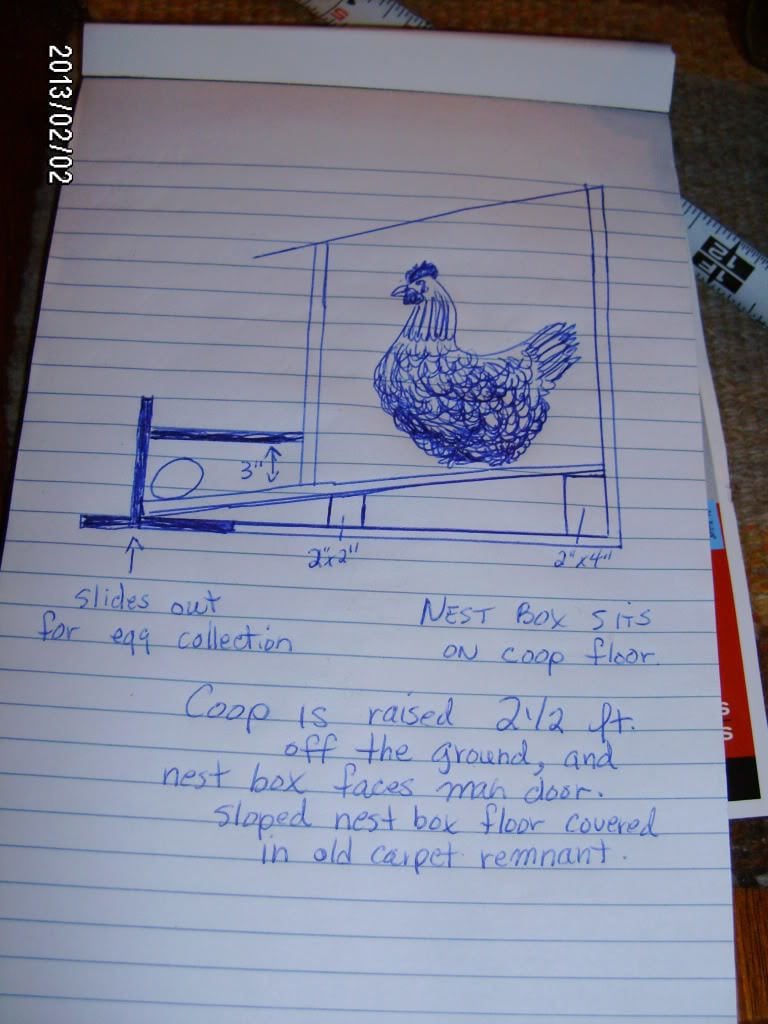 2013/02/02
12
3"
2"x2"
2"x4"
slides out
for egg collection
NEST BOX SITS
ON COOP floor.
Coop is raised 2 1/2 ft.
off the ground, and
nest box faces man door.
Sloped nest box floor covered
in old carpet remnant.